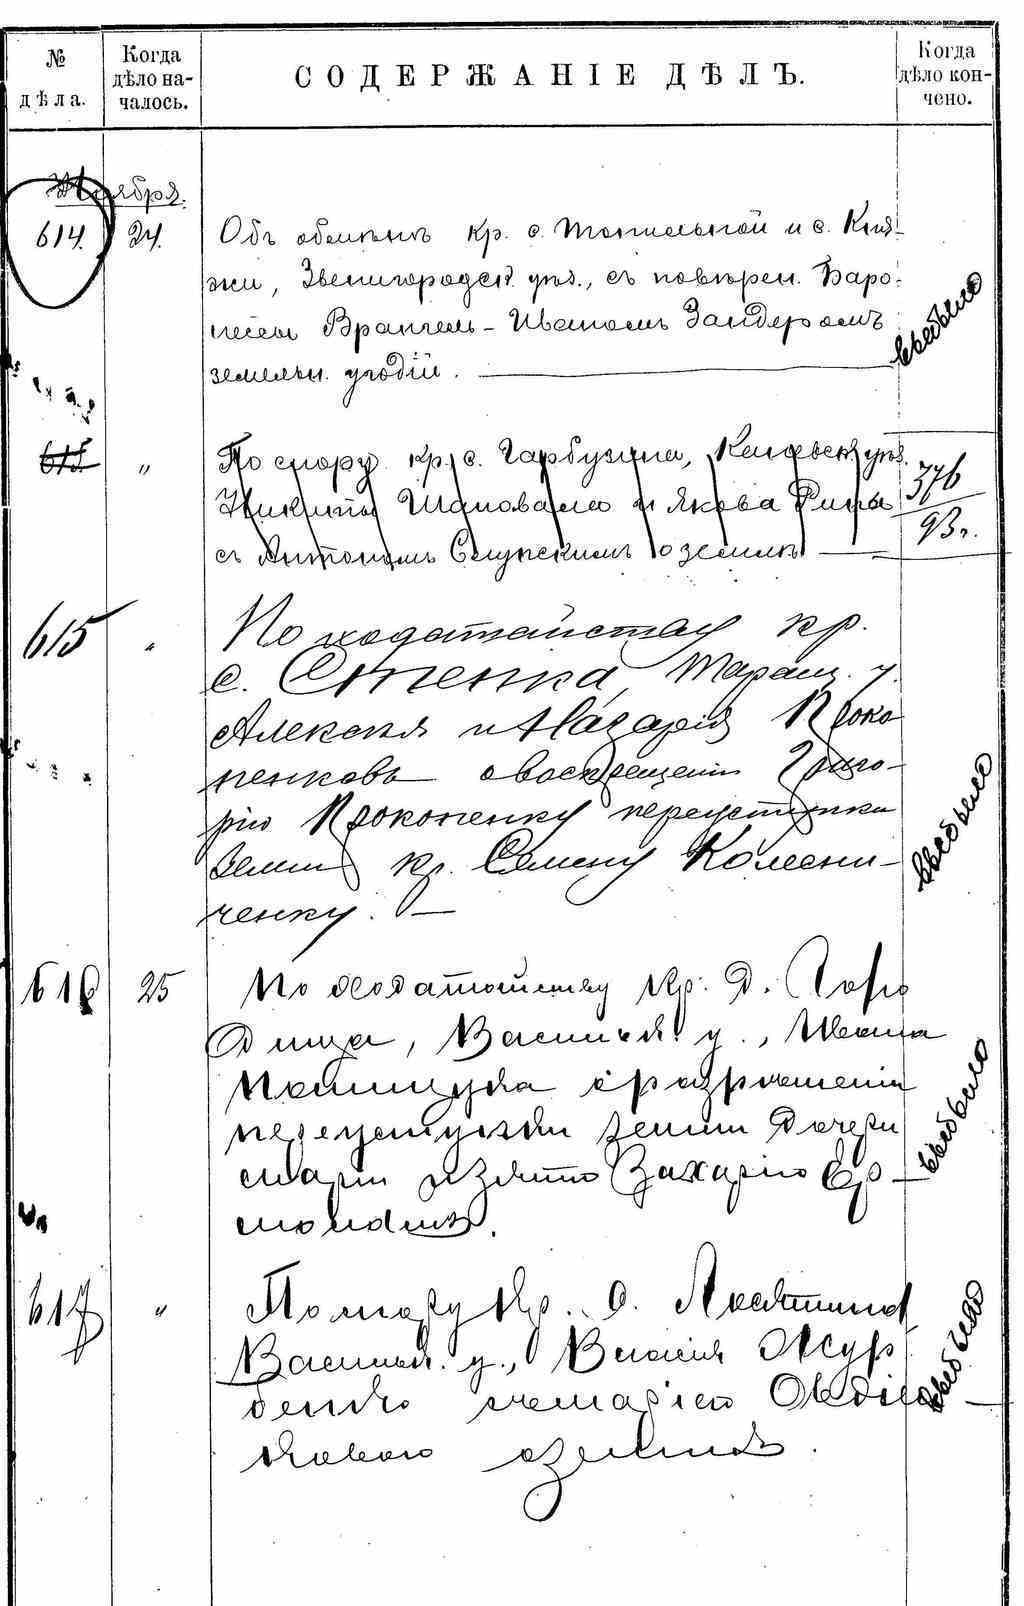 № дѣла.
Когда дѣло началось.
СОДЕРЖАНІЕ ДѢЛЪ.
Когда дѣло кончено.
Ноября.
614. 24. Объ обмѣнѣ кр. с. Топильной и с. Кня-
жи, Звенигородск. уѣз., съ повѣрен. Баро-
нессы Врангель - Иваномъ Зандеромъ
земельн. угодій.
выбыло
615 " По спору кр. с. Гарбузина, Каневск. уѣз.
Никиты Шаповала и Якова Рипы
съ Антономъ о землѣ
376
93 г.
615 " По ходатайству кр.
с. Степка, Таращ. у.
Алексѣя и Назарія Проко
пенковъ о воспрещеніи Григо-
рію Прокопенку переуступки
земли кр. Семену Колесни-
ченку. —
выбыло
616 25 По ходатайству кр. д. Горо
дища, Васильк. у., Ивана
Полищука о разрѣшеніи
переуступки земли дочери
Маріи и зятю Захарію Ер-
молаеву.
выбыло
617 " По спору кр. с.
Васильк. у., Власія Жур
бенко съ Маріею Овдіен
ковою о землѣ.
выбыло